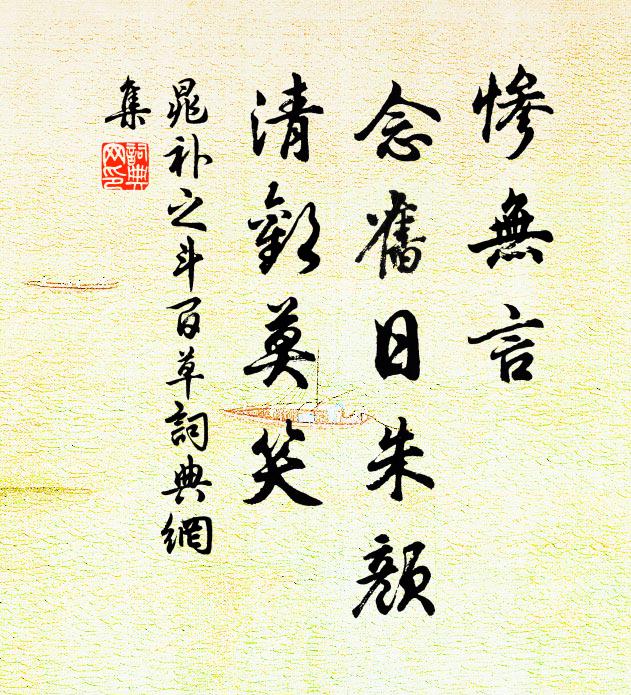 惨無言
念舊日朱顔
清歡莫笑
晁补之斗百草詞典網
集
詞典
网印